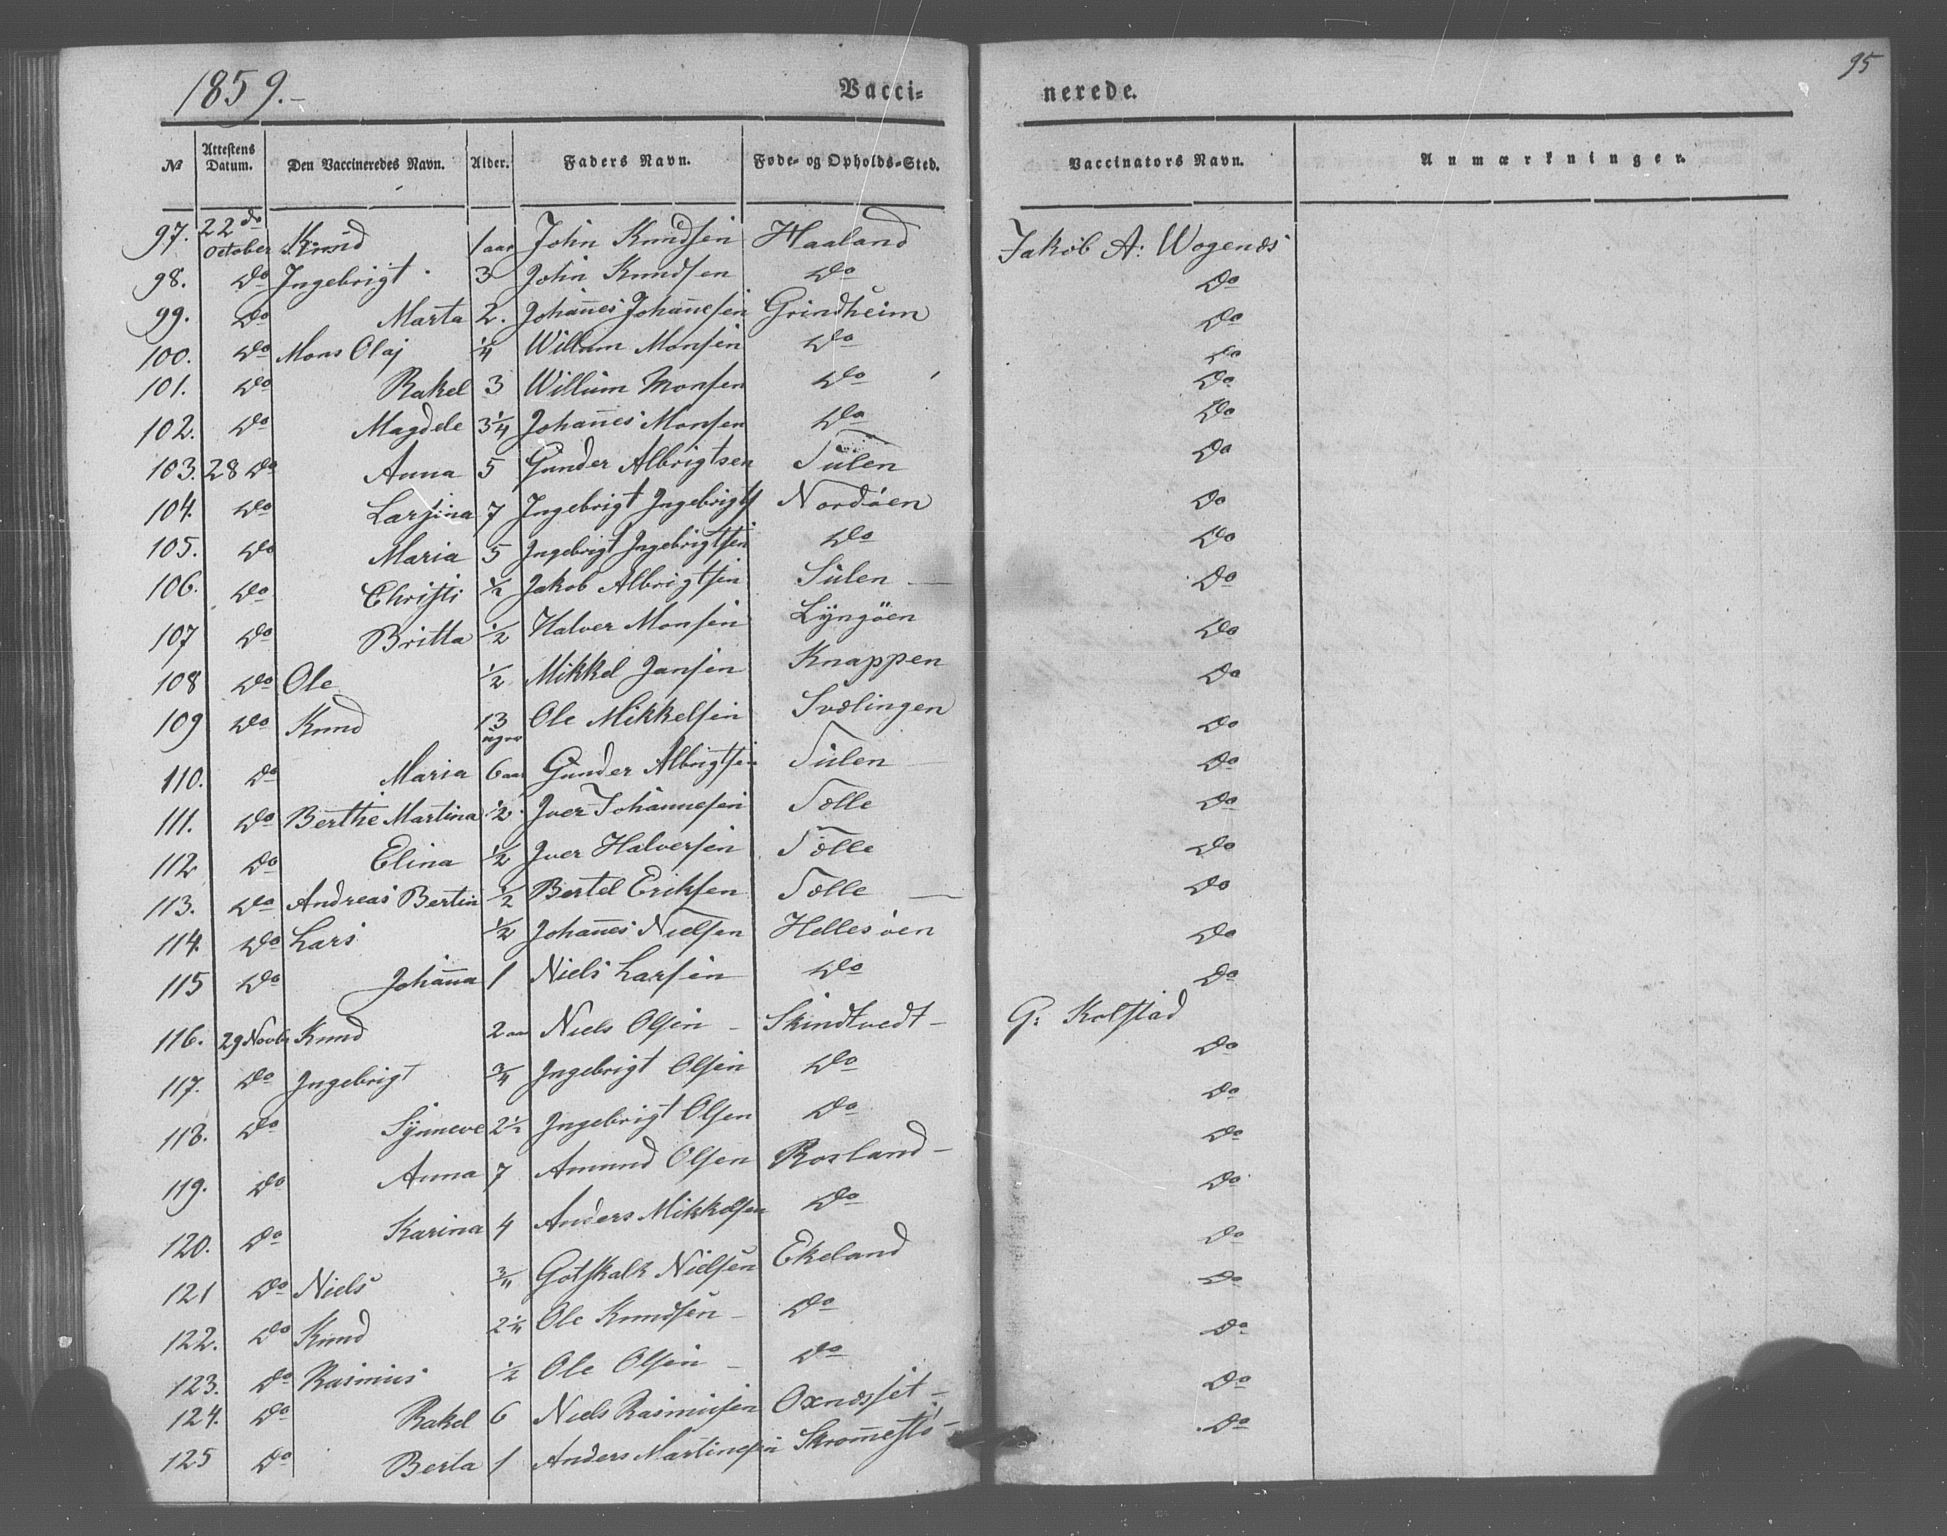 1859.- Vacci= nerede. 95
№ Attestens Datum. Den Vaccineredes Navn. Alder. Faders Navn. Føde- og Opholds-Sted. Vaccinators Navn. Anmærkninger.
97. 22de October Knud 1 aar John Knudsen Haaland Jakob A: Wogenæs
98. Do Ingebrigt 3 John Knudsen Do Do
99. Do Marta 2. Johan̄es Johan̄esen Grindheim Do
100. Do Mons Olaj ¼ Willum Monsen Do Do
101. Do Rakel 3 Willum Monsen Do Do
102. Do Magdele 3¼ Johan̄es Monsen Do Do
103. 28 Do Anna 5 Gunder Albrigtsen Tulen Do
104. Do Larsina 7 Ingebrigt Ingebrigts Nordøen Do
105. Do Maria 5 Ingebrigt Ingebrigtsen Do Do
106. Do Christi ½ Jakob Albrigtsen Sulen Do
107 Do Britta ½ Halver Monsen Lyngøen Do
108 Do Ole ½ Mikkel Jansen Knappen Do
109 Do Knud 13 uger Ole Mikkelsen Svælingen Do
110. Do Maria 6 aar Gunder Albrigtsen Tulen Do
111. Do Berthe Martina ½. Iver Johannesen Tælle Do
112 Do Elina ½ Iver Halversen Tælle Do
113. Do Andreas Bertin ½ Bertel Eriksen Tælle Do
114. Do Lars ½ Johan̄es Nielsen Hellesøen Do
115 Do Johan̄a 1 Niels Larsen Do Do
116. 29 Novbr Knud 2 aar Niels Olsen - Skindtvedt - G: Kolstad
117. Do Ingebrigt ¾ Ingebrigt Olsen Do Do
118. Do Synneve 2½ Ingebrigt Olsen Do Do
119. Do Anna 7 Amund Olsen Rosland - Do
120. Do Karina 4 Anders Mikkelsen Do Do
121 Do Niels ¾ Gotskalk Nielsen Ekeland Do
122. Do Knud 2¼ Ole Knudsen - Do Do
123. Do Rasmus ½ Ole Olsen - Do Do
124. Do Rakel 6 Niels Rasmusen Oxnæsset - Do
125 Do Berta 1 Anders Martinesen Skrom̄estø - Do